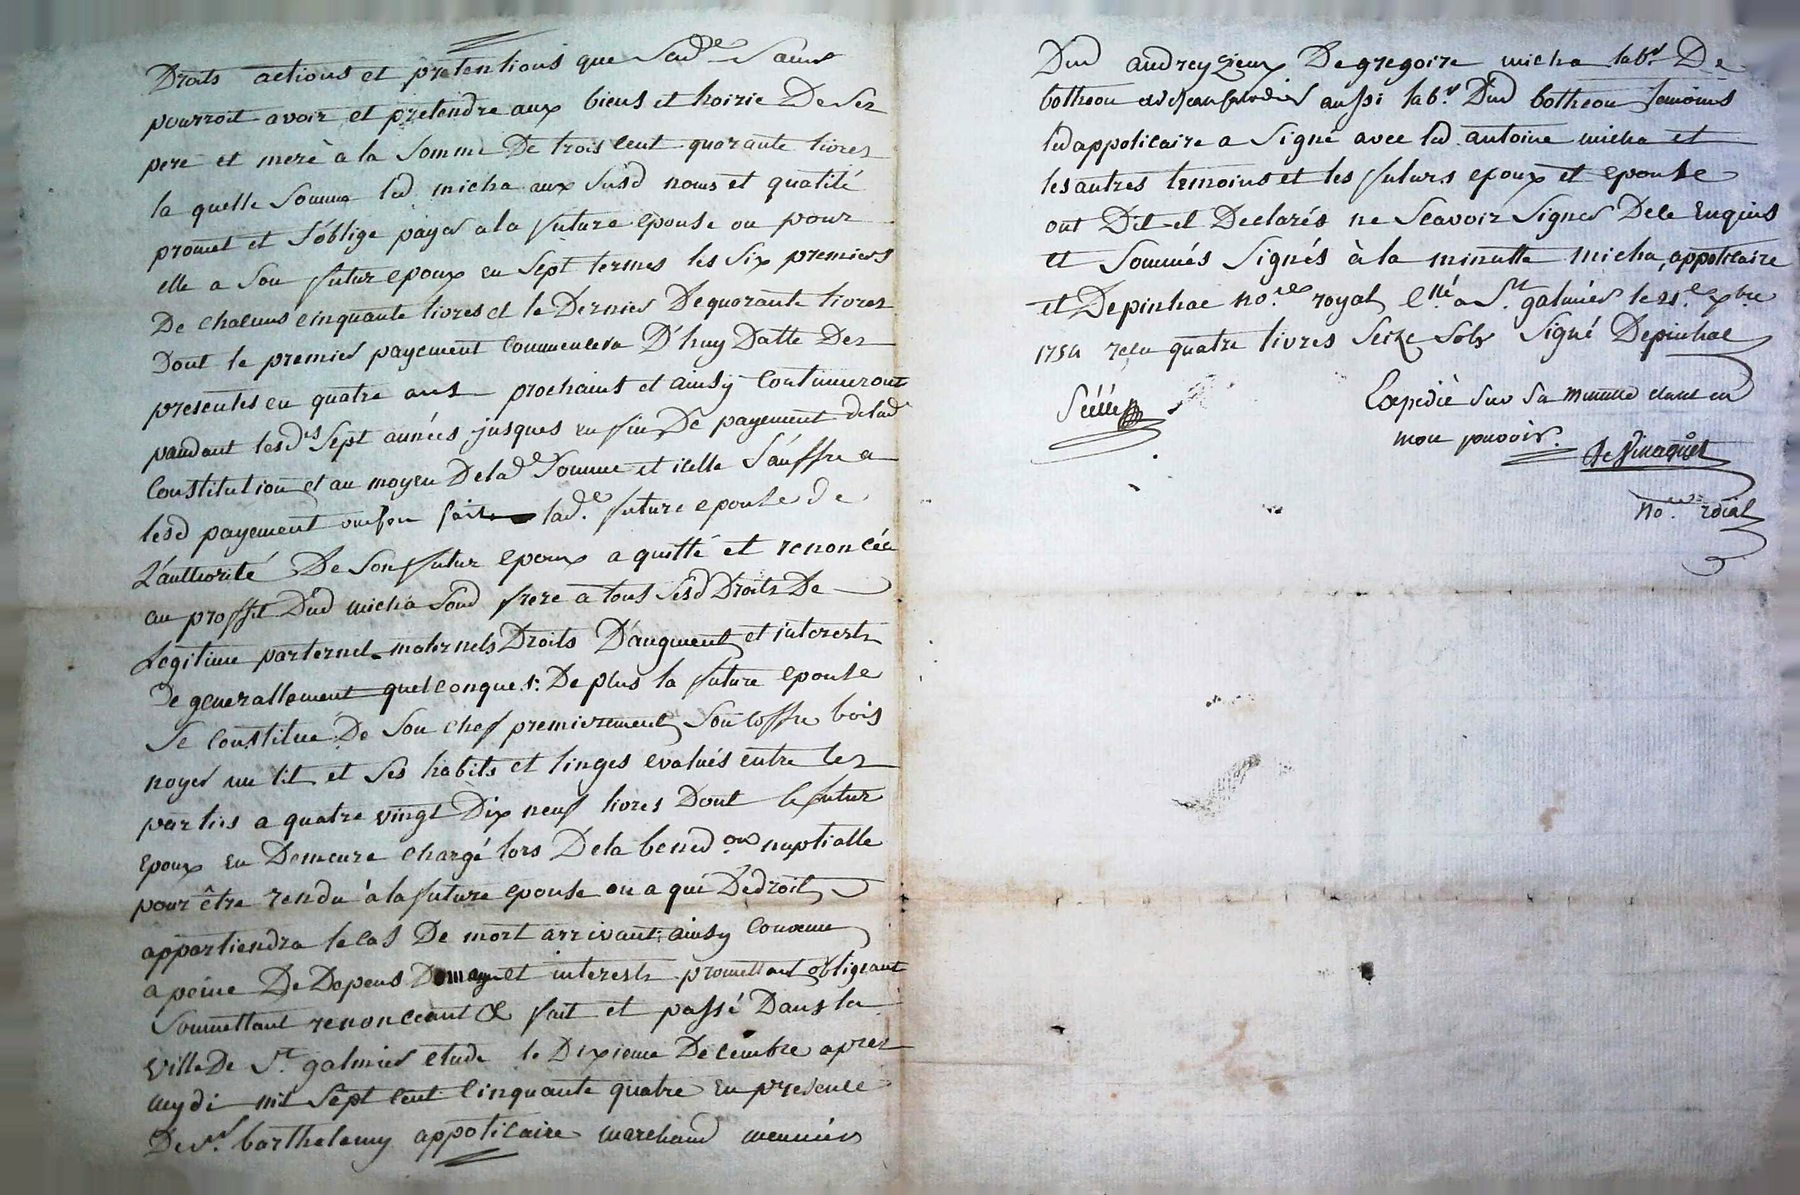 Droits actions et pretentions que Sad.e Sœur
pourroit avoir et pretendre aux biens et hoirie De Ses
pere et merè à la Somme De trois Cent quarante livres
la quelle Somme led. micha aux Susd noms et qualité
promet et S'oblige payer a la future epouse ou pour
elle a Son futur epoux en Sept termes les Six premiers
De chacuns cinquante livres et le Dernier De quarante livres
Dont le premier payement Commencera D'huy Datte Des
presentes en quatre ans prochains et ainsy Continueront
pandant lesd.s Sept années jusques en fin De payement delad
Constitution et au moyen De lad.e Somme et icelle Sauffre a
lesd payement fait lad.e future epouse de
L'authorité De Son futur epoux a quitté et renoncéa
au proffit Dud micha Sond frere a tous Sesd Droits De
Legitime parternel maternels Droits D'augment et interests
De generallement quelconque.s. De plus la future epouse
Se Constitue De Son chef premierement Son Coffre bois
noyer un lit et Ses habits et linges evalués entre les
parties a quatre vingt Dix neuf livres Dont le futur
Epoux en Demeure chargé lors De la bened.on nuptialle
pour être rendu à la future epouse ou a qui De droit
appartiendra le cas De mort arrivant ainsy Convenu
a peine De Depens Domages et interests promettant obligeant
Soumettant renonceant & fait et passé Dans la
ville De S.t galmier etude le Dixieme Decembre apres
mydi mil Sept Cent Cinquante quatre En presence
De S.r barthelemy appoticaire marchand meunier
Dud andrezieux De gregoire micha lab.r De
botheon aussi lab.r Dud botheon temoins
led appoticaire a Signé avec led. antoine micha et
les autres temoins et les futurs epoux et epouse
ont Dit et Declarés ne Scavoir Signer De ce Enquis
et Sommés Signés à la minutte micha, appoticaire
et Depinhac no.re royal C.llé a S.t galmier le 21.e x.bre
1754 reçu quatre livres Seize Sols Signé Depinhac
Scéllé
Expedié Sur Sa minutte etant en
mon pouvoir.
no.re roial